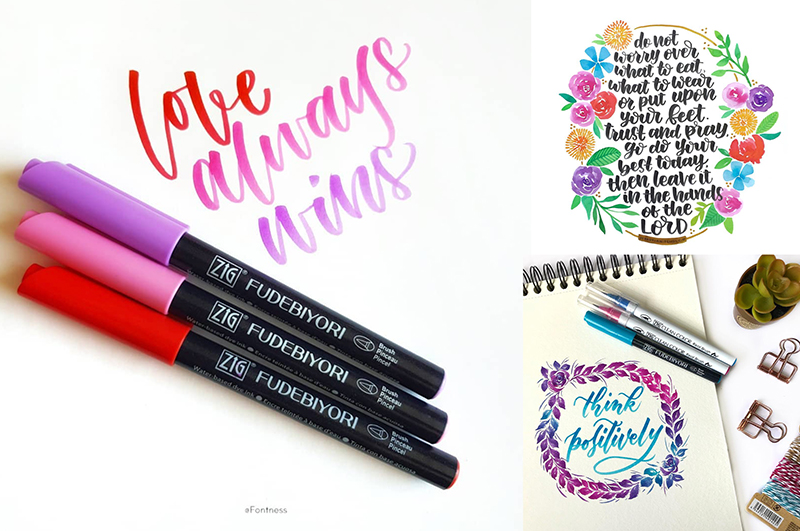 love
always
wins
ZIG® FUDEBIYORI
Brush
Pinceau
Pincel
ZIG® FUDEBIYORI
Brush
Pinceau
Pincel
Water-based dye ink
ZIG® FUDEBIYORI
Brush
Pinceau
Pincel
Water-based dye ink • Encre teintée à base d'eau • Tinta con base acuosa
@Fontness
do not
worry over
what to eat,
what to wear
or put upon
your feet.
trust and pray,
go do your
best today.
then leave it
in the hands
of the
LORD
ZIG FUDEBIYORI
think
positively